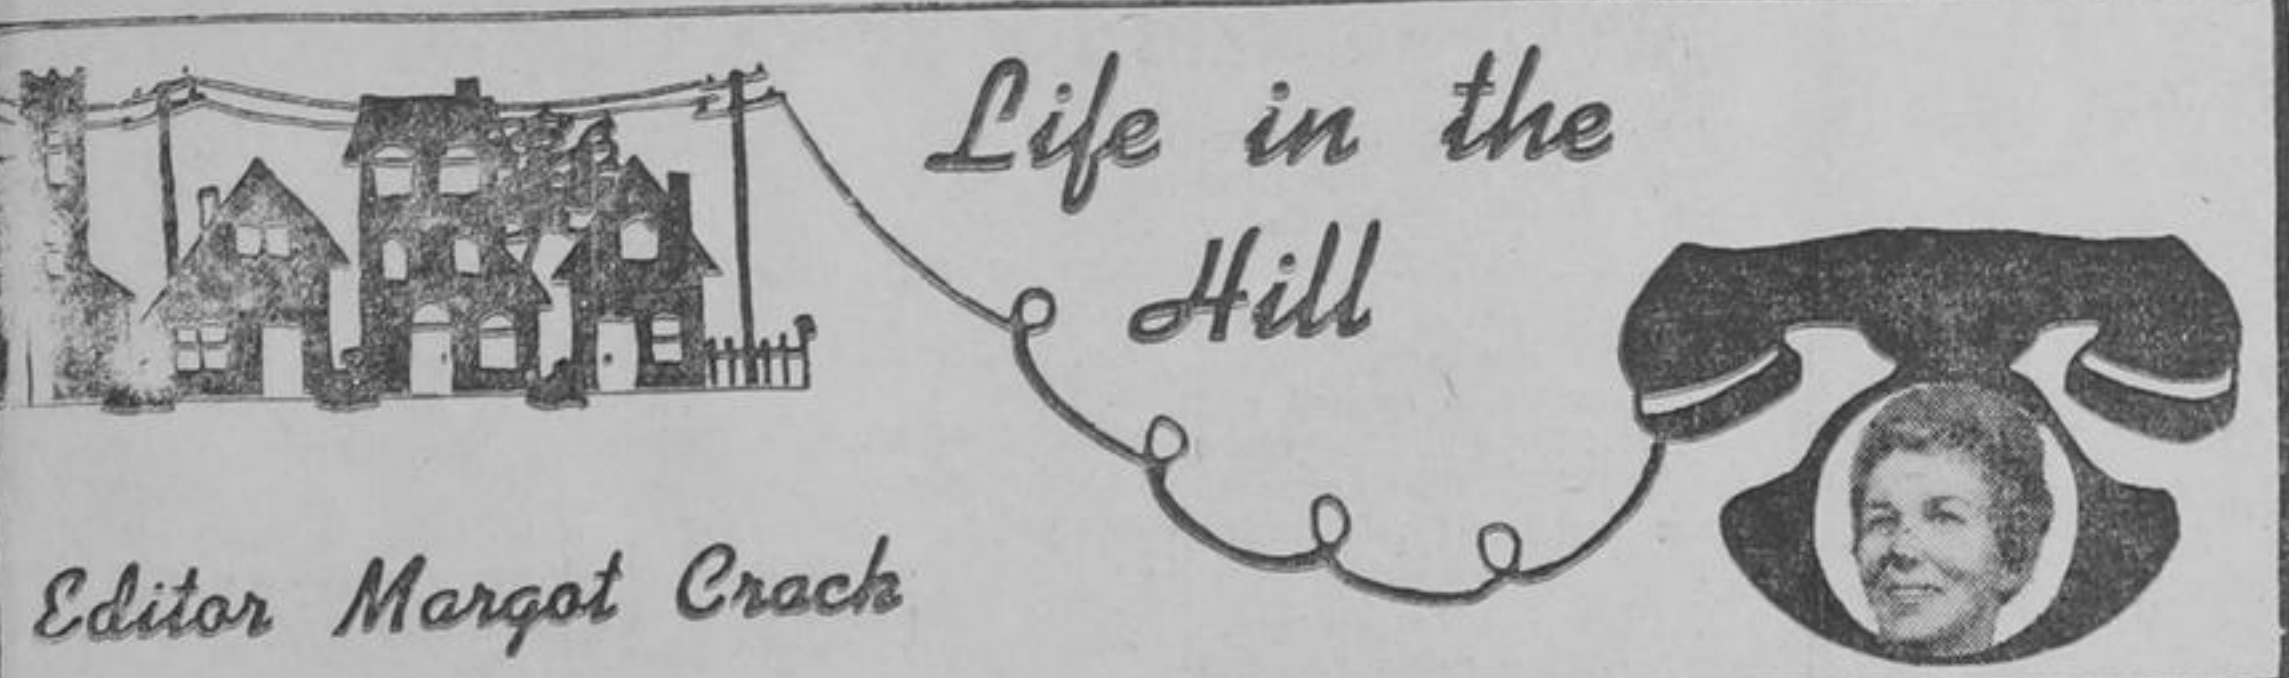 Life in the
Hill
Editor Margot Crack